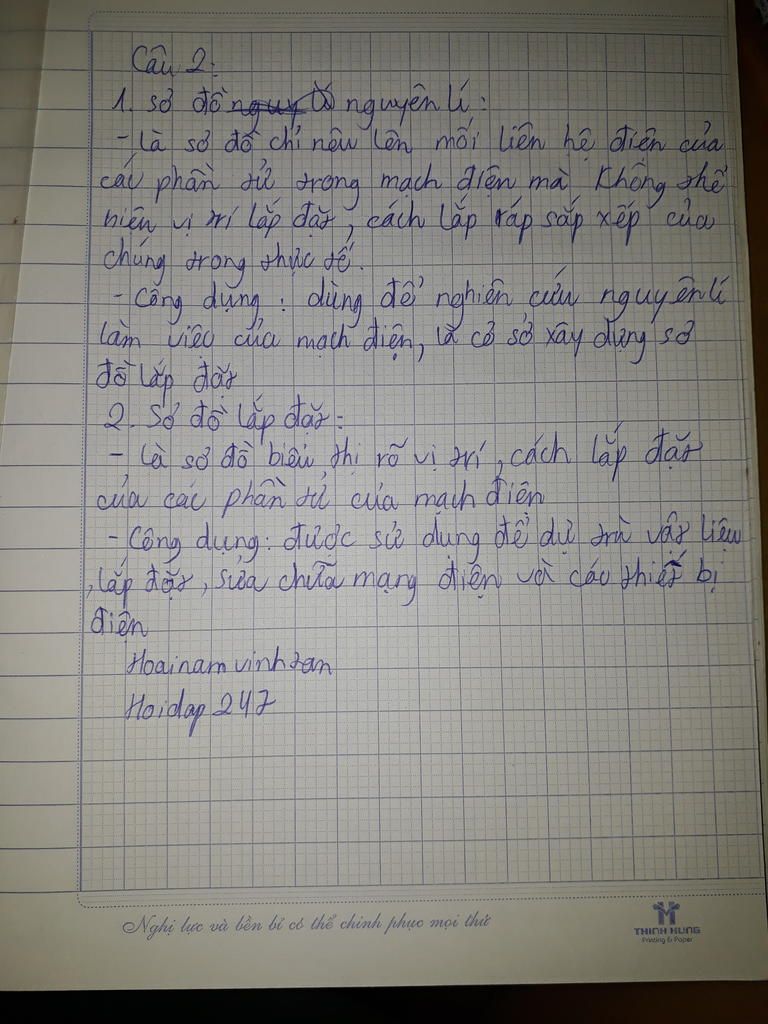 Câu 2:
1. Sơ đồ nguyên lí:
- Là sơ đồ chỉ nêu lên mối liên hệ điện của
các phần tử trong mạch điện mà không thể
hiện vị trí lắp đặt, cách lắp ráp sắp xếp của
chúng trong thực tế.
- Công dụng: dùng để nghiên cứu nguyên lí
làm việc của mạch điện, là cở sở xây dựng sơ
đồ lắp đặt
2. Sơ đồ lắp đặt:
- Là sơ đồ biểu thị rõ vị trí, cách lắp đặt
của các phần tử của mạch điện
- Công dụng: được sử dụng để dự trù vật liệu
, lắp đặt, sửa chữa mạng điện và các thiết bị
điện
Hoainamvinhtan
Hoidap 247
Nghị lực và bền bỉ có thể chinh phục mọi thứ
THINH HUNG
Printing & Paper